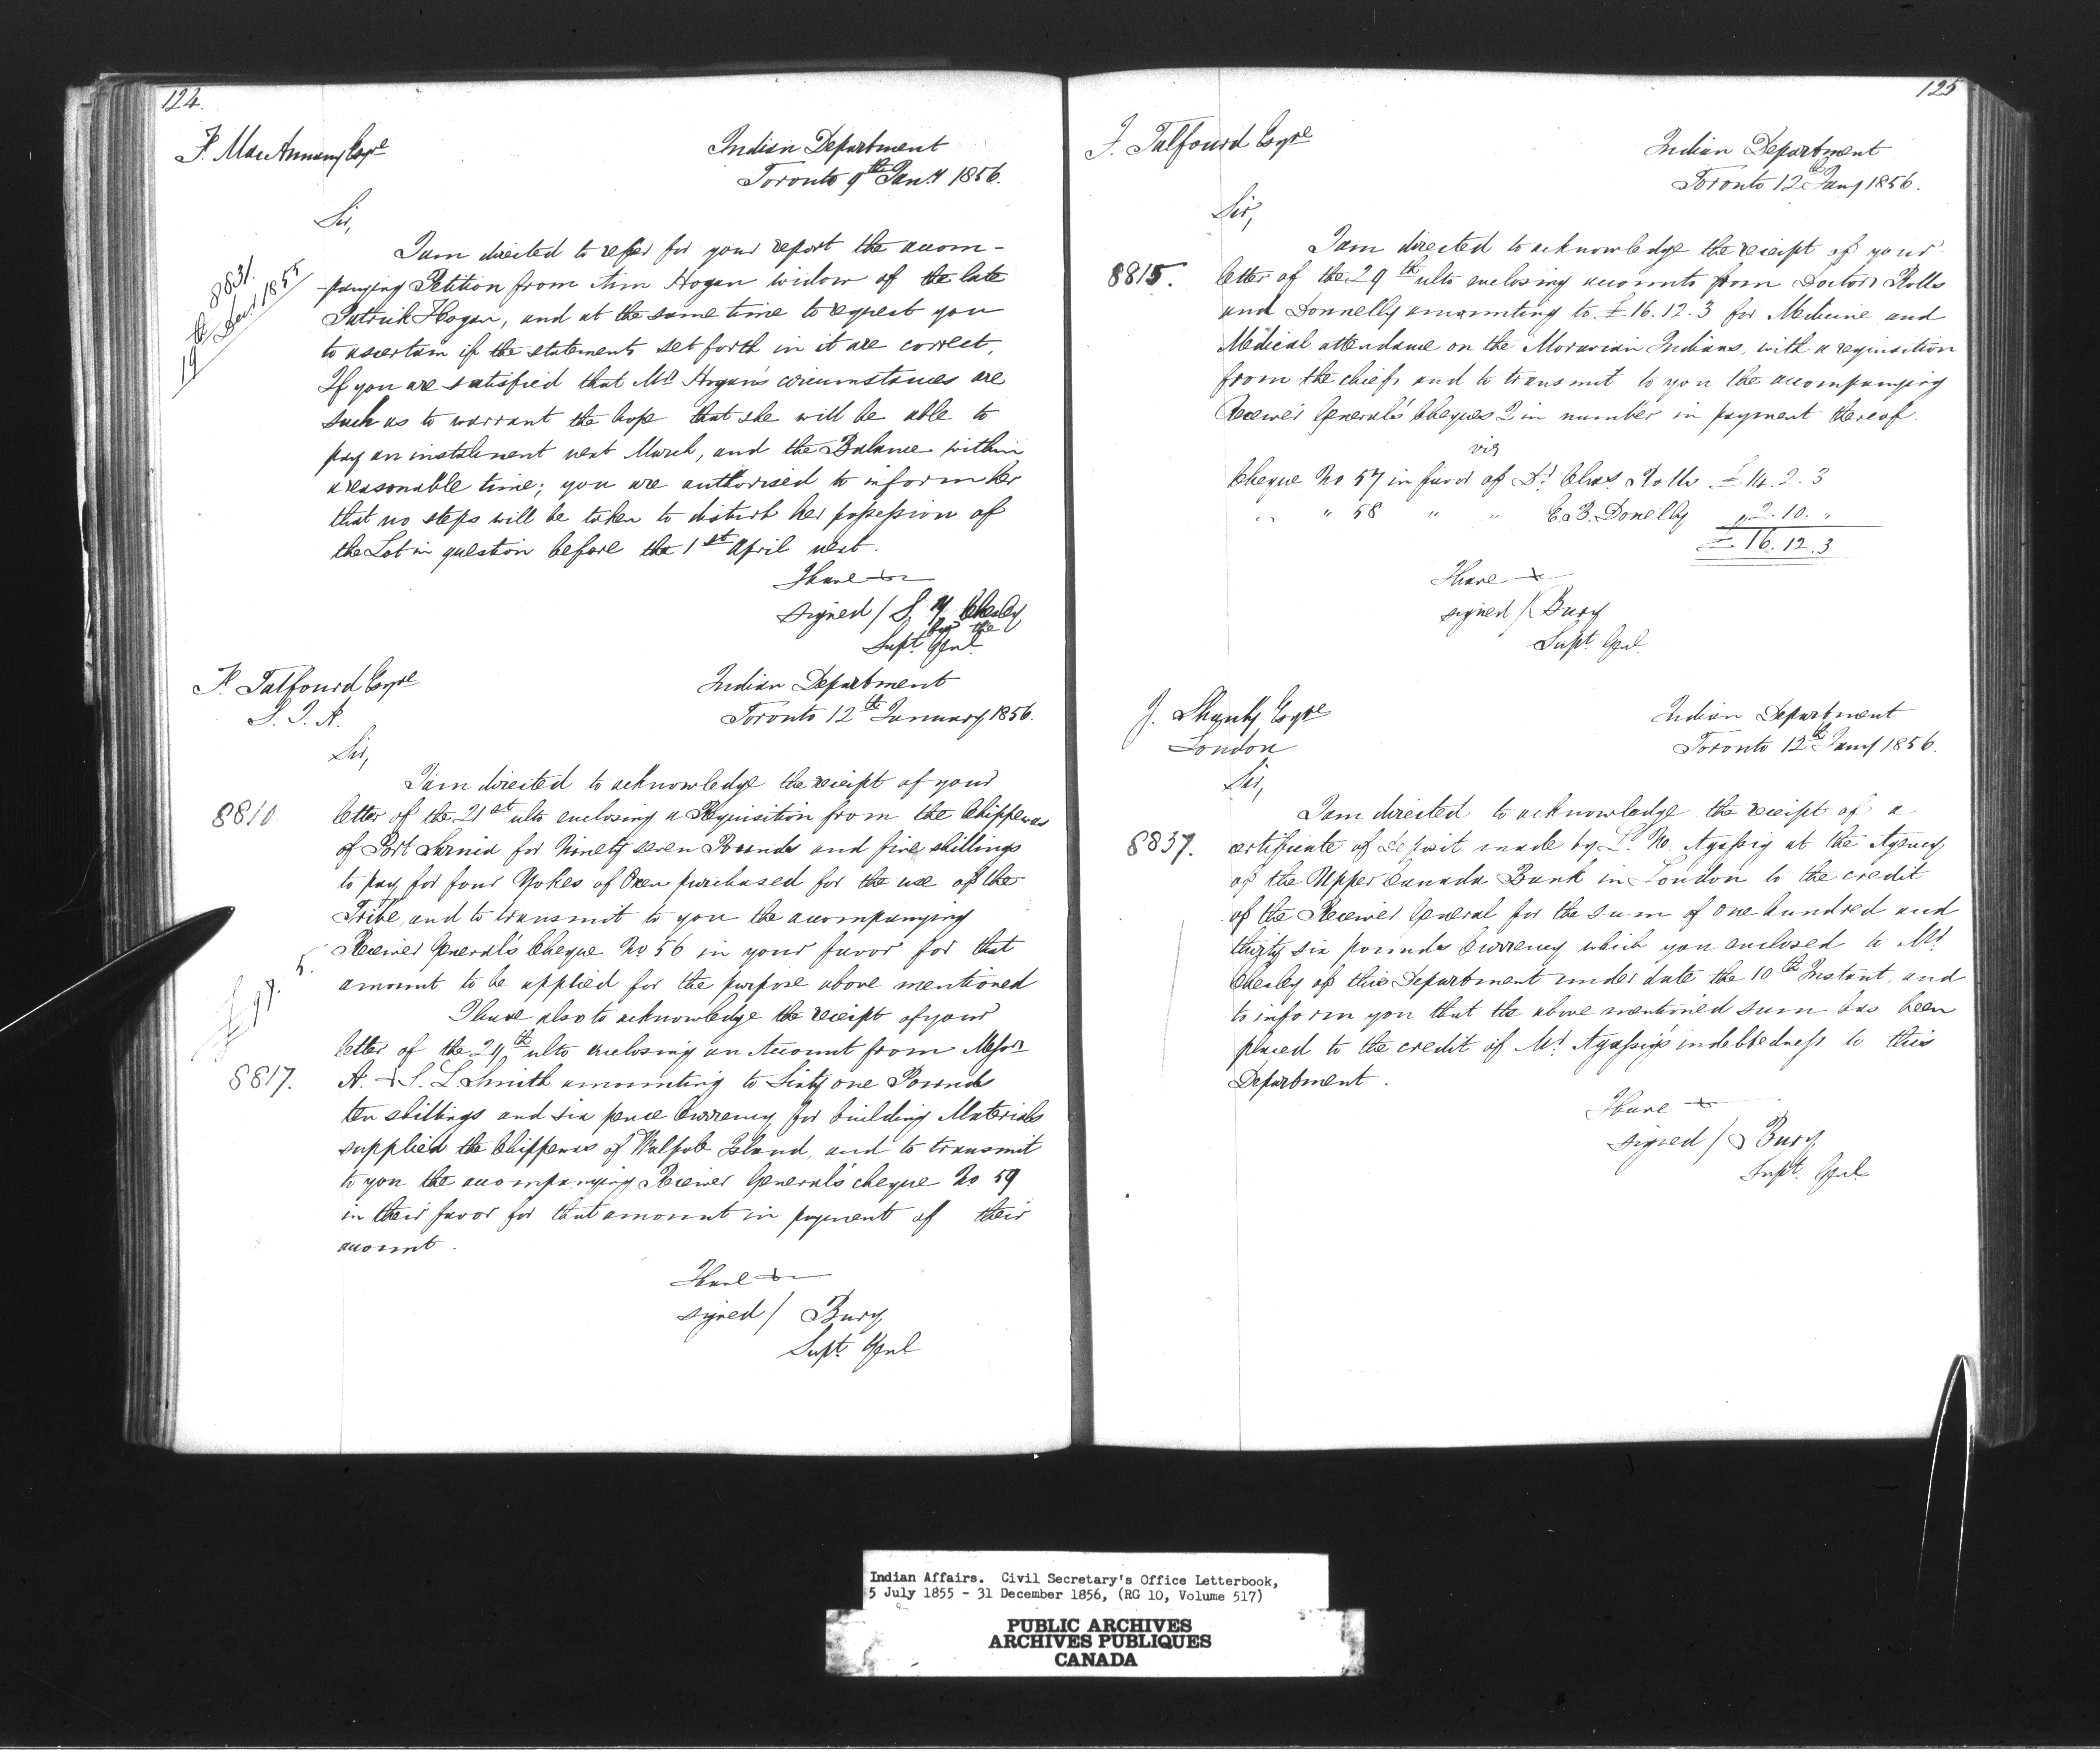 124.
F. MacAnnany Esqre
Indian Department
Toronto 9th Jany 1856.
Sir,
8831.
19th Decr 1855
I am directed to refer for your report the accom-
panying Petition from Ann Hogan widow of the late
Patrick Hogan, and at the same time to request you
to ascertain if the statements set forth in it are correct,
If you are satisfied that Mrs Hogan's circumstances are
such as to warrant the hope that she will be able to
pay an instalment next March, and the Balance within
a reasonable time; you are authorised to inform her
that no steps will be taken to disturb her possession of
the Lot in question before the 1st April next.
I have &c
signed / S. Y. Chesley
for the
Supt Genl
F. Talfourd Esqre
S. I. A.
Indian Department
Toronto 12th January 1856.
Sir,
I am directed to acknowledge the receipt of your
8810 letter of the 21st ulto enclosing a Requisition from the Chippewas
of Port Sarnia for Ninety seven Pounds and five shillings
to pay for four Yokes of Oxen purchased for the use of the
Tribe, and to transmit to you the accompanying
Receiver General's Cheque No 56 in your favor for that
£97. 5.
amount to be applied for the purpose above mentioned
I have also to acknowledge the receipt of your
letter of the 29th ulto enclosing an Account from Messrs
8817. A. & S. L. Smith amounting to Sixty one Pounds
ten shillings and six pence Currency for building Materials
supplied the Chippewas of Walpole Island, and to transmit
to you the accompanying Receiver General's cheque No 59
in their favor for that amount in payment of their
account.
I have &c
signed / Bury
Supt Genl
125
F. Talfourd Esqre
Indian Department
Toronto 12th Jany 1856.
Sir,
I am directed to acknowledge the receipt of your
8815. letter of the 29th ulto enclosing accounts from Doctors Rolls
and Donnelly amounting to £16.12.3 for Medicine and
Medical attendance on the Moravian Indians, with a requisition
from the chiefs and to transmit to you the accompanying
Receiver General's Cheques 2 in number in payment thereof.
viz
Cheque No 57 in favor of Dr Chas. Rolls £14.2.3
" " 58 " " E.B. Donelly " 2.10. "
£16.12.3
I have &c
signed / Bury
Supt Genl.
J. Shanly Esqre
London
Indian Department
Toronto 12th Jany 1856.
Sir,
I am directed to acknowledge the receipt of a
8837. certificate of deposit made by L. No. Agassiz at the Agency
of the Upper Canada Bank in London to the credit
of the Receiver General for the sum of one hundred and
thirty six pounds Currency which you enclosed to Mr
Chesley of this Department under date the 10th Instant, and
to inform you that the above mentioned sum has been
placed to the credit of Mr Agassiz's indebtedness to this
Department.
I have &c
signed / Bury
Supt. Genl
Indian Affairs. Civil Secretary's Office Letterbook,
5 July 1855 - 31 December 1856, (RG 10, Volume 517)
PUBLIC ARCHIVES
ARCHIVES PUBLIQUES
CANADA